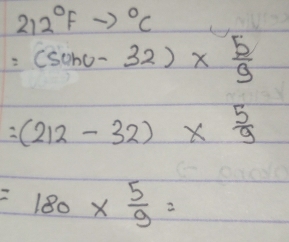 212°F → °C
= (suhu - 32) × 5/9
= (212 - 32) × 5/9
= 180 × 5/9 =